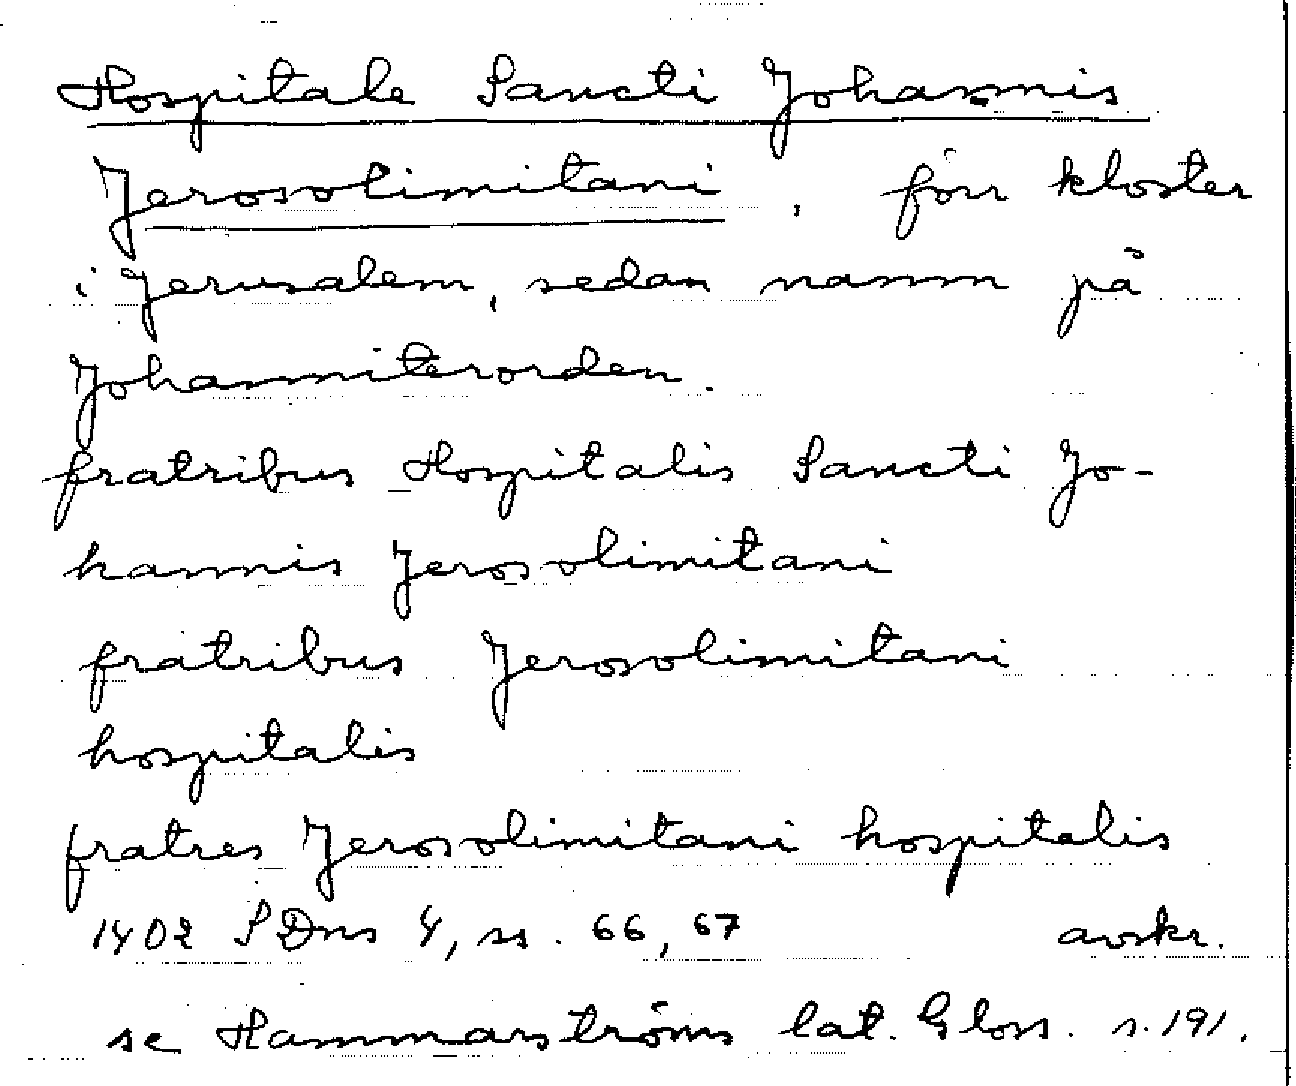 Hospitale Sancti Johannis
Jerosolimitani, förr kloster
i Jerusalem, sedan namn på
Johanniterorden.
fratribus Hospitalis Sancti Jo-
hannis Jerosolimitani
fratribus Jerosolimitani
hospitalis
fratres Jerosolimitani hospitalis
1402 SDns 4, ss. 66, 67 avskr.
se Hammarströms lat. Gloss. s. 191.